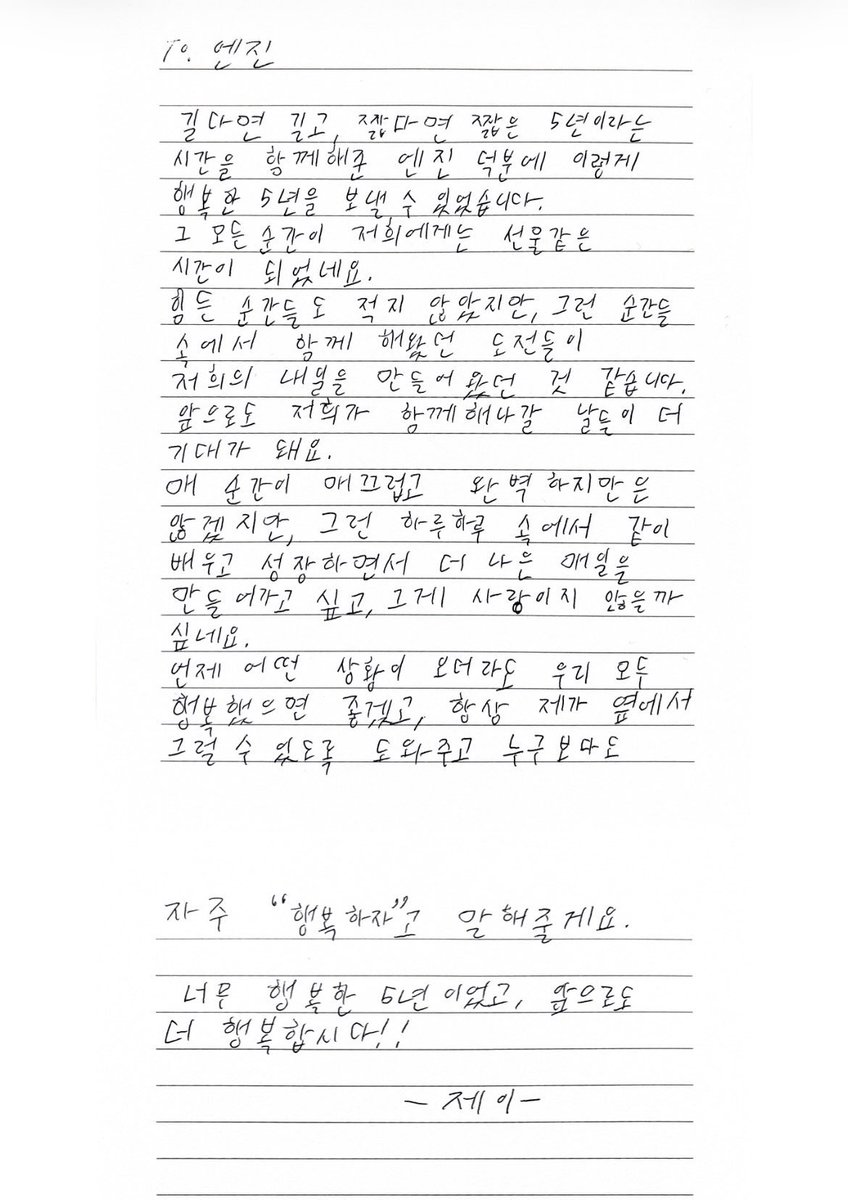 To. 엔진
길다면 길고, 짧다면 짧은 5년이라는
시간을 함께해준 엔진 덕분에 이렇게
행복한 5년을 보낼 수 있었습니다.
그 모든 순간이 저희에게는 선물같은
시간이 되었네요.
힘든 순간들도 적지 않았지만, 그런 순간들
속에서 함께 해왔던 도전들이
저희의 내일을 만들어 왔던 것 같습니다.
앞으로도 저희가 함께해나갈 날들이 더
기대가 돼요.
매 순간이 매끄럽고 완벽하지만은
않겠지만, 그런 하루하루 속에서 같이
배우고 성장하면서 더 나은 매일을
만들어가고 싶고, 그게 사랑이지 않을까
싶네요.
언제 어떤 상황이 오더라도 우리 모두
행복했으면 좋겠고, 항상 제가 옆에서
그럴 수 있도록 도와주고 누구보다도
자주 “행복하자”고 말해줄게요.
너무 행복한 5년이었고, 앞으로도
더 행복합시다!!
- 제이 -